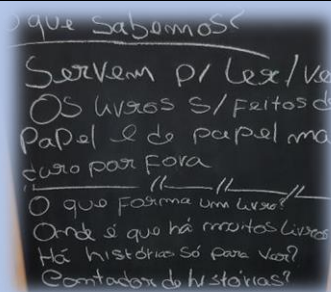 O que sabemos?
Servem p/ Ler/ve
Os livros s/ feitos d
Papel e do papel ma
duro por fora
O que forma um livro?
Onde é que há muitos Livros
Há histórias só para ver?
Contador de histórias?